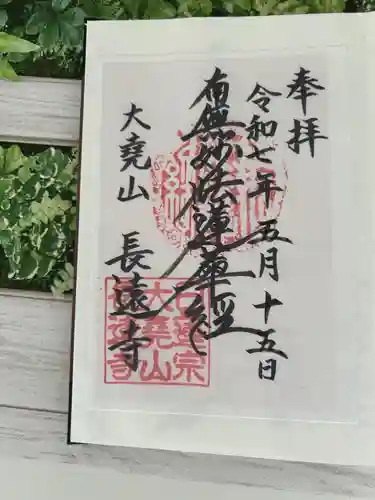 奉拝
令和七年五月十五日
南無妙法蓮華経
大堯山
長遠寺
日蓮宗
大堯山
長遠寺